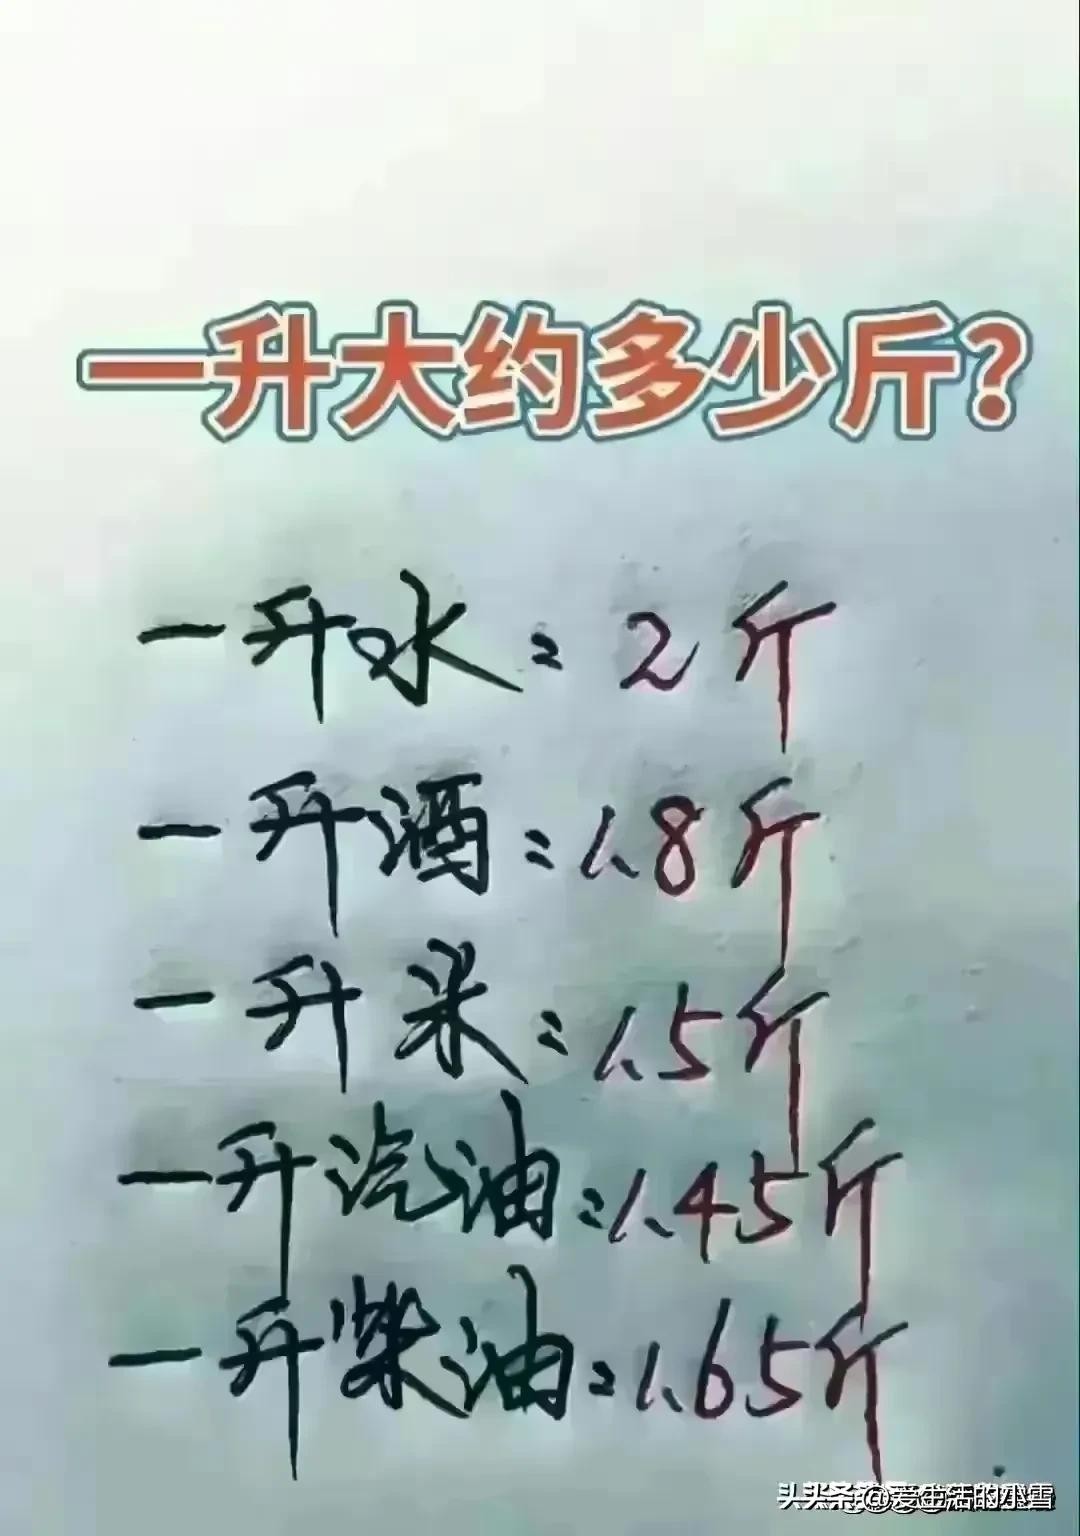 一升大约多少斤?
一升水=2斤
一升酒=1.8斤
一升米=1.5斤
一升汽油=1.45斤
一升柴油=1.65斤
头条@爱生活的小雪